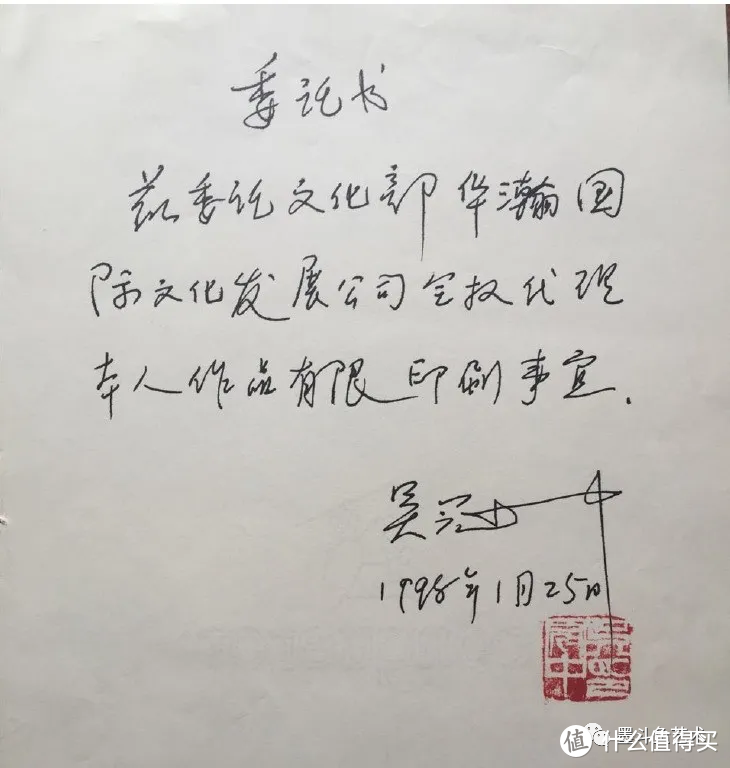 委托书
兹委托文化部华瀚国
际文化发展公司全权代理
本人作品有限印刷事宜.
吴冠中
1998年1月25日
墨斗鱼艺术
值 什么值得买